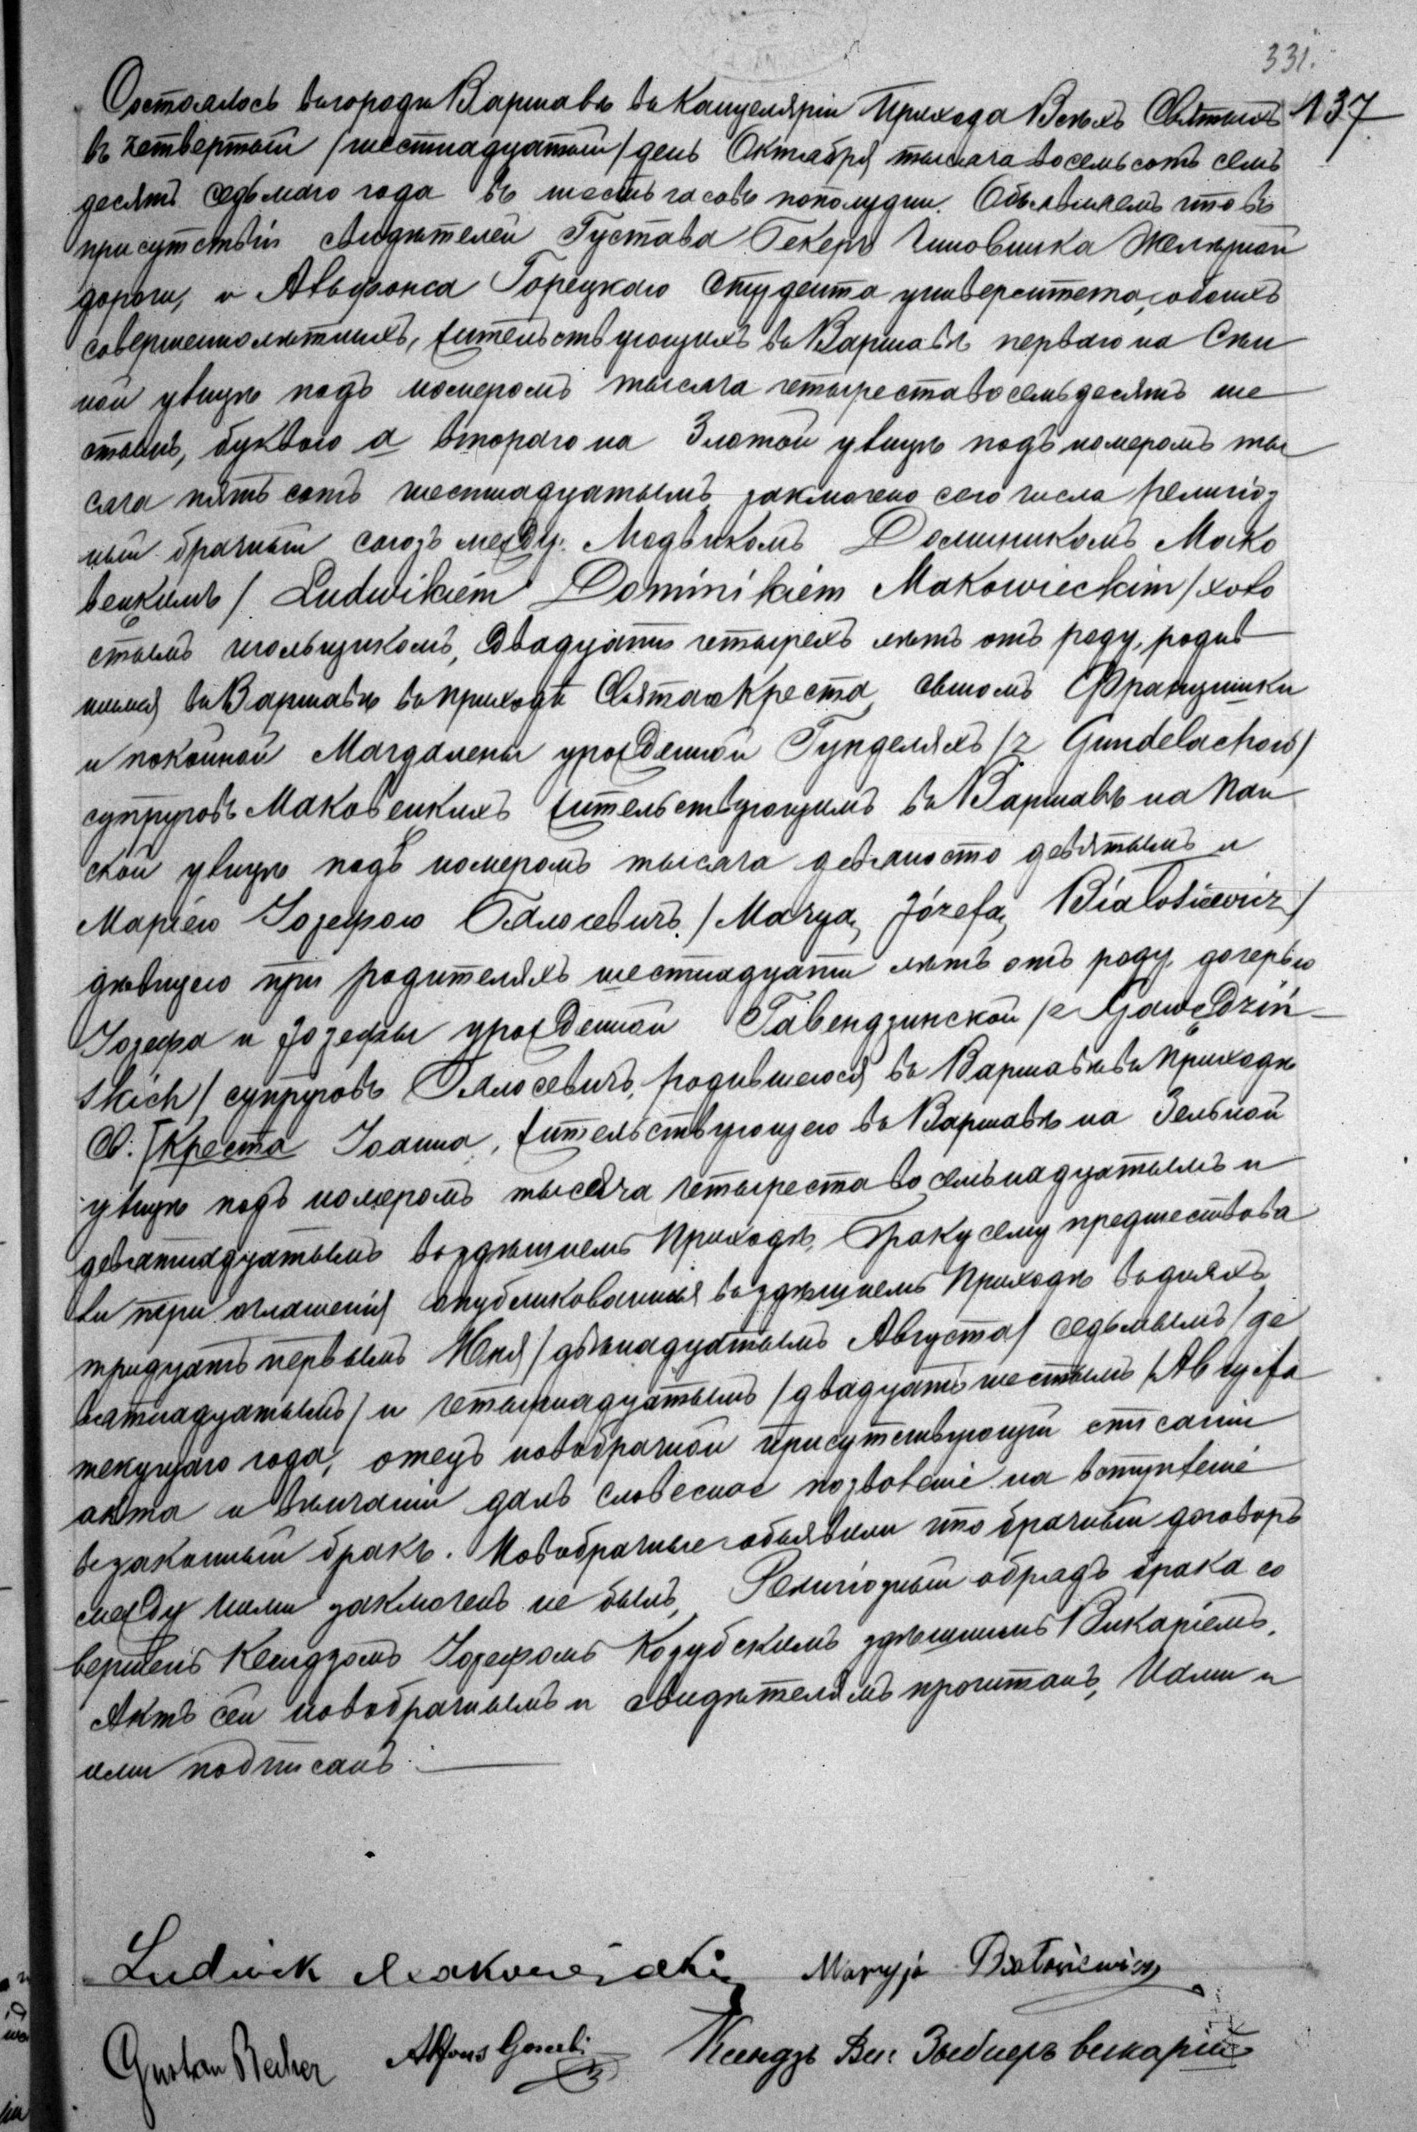 331.
137
Состоялось въ городѣ Варшавѣ въ Канцеляріи Прихода Всѣхъ Святыхъ
въ четвертый /шестнадцатый/ день Октября тысяча восемьсотъ семь
десятъ седьмаго года въ шесть часовъ пополудни. Объявляемъ что въ
присутствіи свидѣтелей Густава Бекеръ чиновника Желѣзной
дороги, и Альфонса Горецкаго студента университета, обоихъ
совершеннолѣтнихъ, жительствующихъ въ Варшавѣ перваго на
ной улицѣ подъ номеромъ тысяча четыреста восемьдесятъ ше
стымъ, буквою а втораго на Злотой улицѣ подъ номеромъ ты
сяча пятьсотъ шестнадцатымъ заключено сего числа религіоз
ный брачный союзъ между: Людвикомъ Доминикомъ Мако
вецкимъ / Ludwikiem Dominikiem Makowieckim / холо
стымъ игольщикомъ, двадцати четырехъ лѣтъ отъ роду, родив
шимся въ Варшавѣ въ приходѣ Святаго Креста, сыномъ Францишки
и покойной Магдалены урожденной Гунделяхъ / z Gundelachow /
супруговъ Маковецкихъ жительствующимъ въ Варшавѣ на Пан
ской улицѣ подъ номеромъ тысяча девяносто девятымъ и
Маріею Іозефою Бялосевичъ / Marya Józefa Białosiewicz /
дѣвицею при родителяхъ шестнадцати лѣтъ отъ роду, дочерью
Іозефа и Іозефы урожденной Гавендзинской / z Gawędziń
skich / супруговъ Бялосевичъ, родившеюся въ Варшавѣ въ Приходѣ
Св: Креста Іоанна, жительствующею въ Варшавѣ на Зельной
улицѣ подъ номеромъ тысяча четыреста восемьнадцатымъ и
девятнадцатымъ въ здѣшнемъ Приходѣ, Браку сему предшествова
ли три оглашенія опубликованныя въ здѣшнемъ Приходѣ въ дняхъ
тридцать первымъ Іюля / двѣнадцатымъ Августа / седьмымъ / де
вятнадцатымъ / и четырнадцатымъ / двадцать шестымъ / Августа
текущаго года, отецъ новобрачной присутствующій при писаніи
акта и вѣнчаніи далъ словесное позволеніе на вступленіе
въ законный бракъ. Новобрачные объявили что брачный договоръ
между ними заключенъ не былъ, Религіозный обрядъ брака со
вершенъ Ксендзомъ Іозефомъ Козубскимъ здѣшнимъ Викаріемъ.
Актъ сей новобрачнымъ и свидѣтелямъ прочитанъ, Нами и
ими подписанъ.
Ludwik Makowiecki Maryja Białosiewicz
Gustaw Beker Alfons Gorecki Ксендзъ викарій